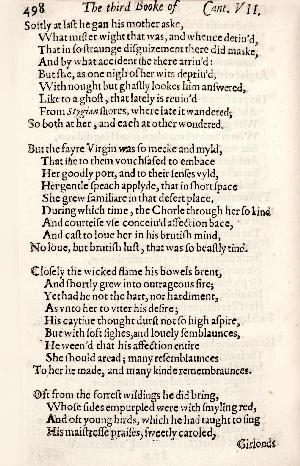 498 The third Booke of Cant. VII.
Softly at last he gan his mother aske,
What mister wight that was, and whence deriu'd,
That in so straunge disguizement there did maske,
And by what accident she there arriu'd:
But she, as one nigh of her wits depriu'd,
With nought but ghastly lookes him answered,
Like to a ghost, that lately is reuiu'd
From Stygian shores, where late it wandered;
So both at her, and each at other wondered.
But the fayre Virgin was so meeke and myld,
That she to them vouchsafed to embace
Her goodly port, and to their senses vyld,
Her gentle speach applyde, that in short space
She grew familiare in that desert place,
During which time, the Chorle through her so kind
And courteise vse conceiu'd affection bace,
And cast to loue her in his brutish mind,
No loue, but brutish lust, that was so beastly tind.
Closely the wicked flame his bowels brent,
And shortly grew into outrageous fire;
Yet had he not the hart, nor hardiment,
As vnto her to vtter his desire;
His caytiue thought durst not so high aspire,
But with soft sighes, and louely semblaunces,
He ween'd that his affection entire
She should aread; many resemblaunces
To her he made, and many kinde remembraunces.
Oft from the forrest wildings he did bring,
Whose sides empurpled were with smyling red,
And oft young birds, which he had taught to sing
His maistresse praises, sweetly caroled,
Girlonds